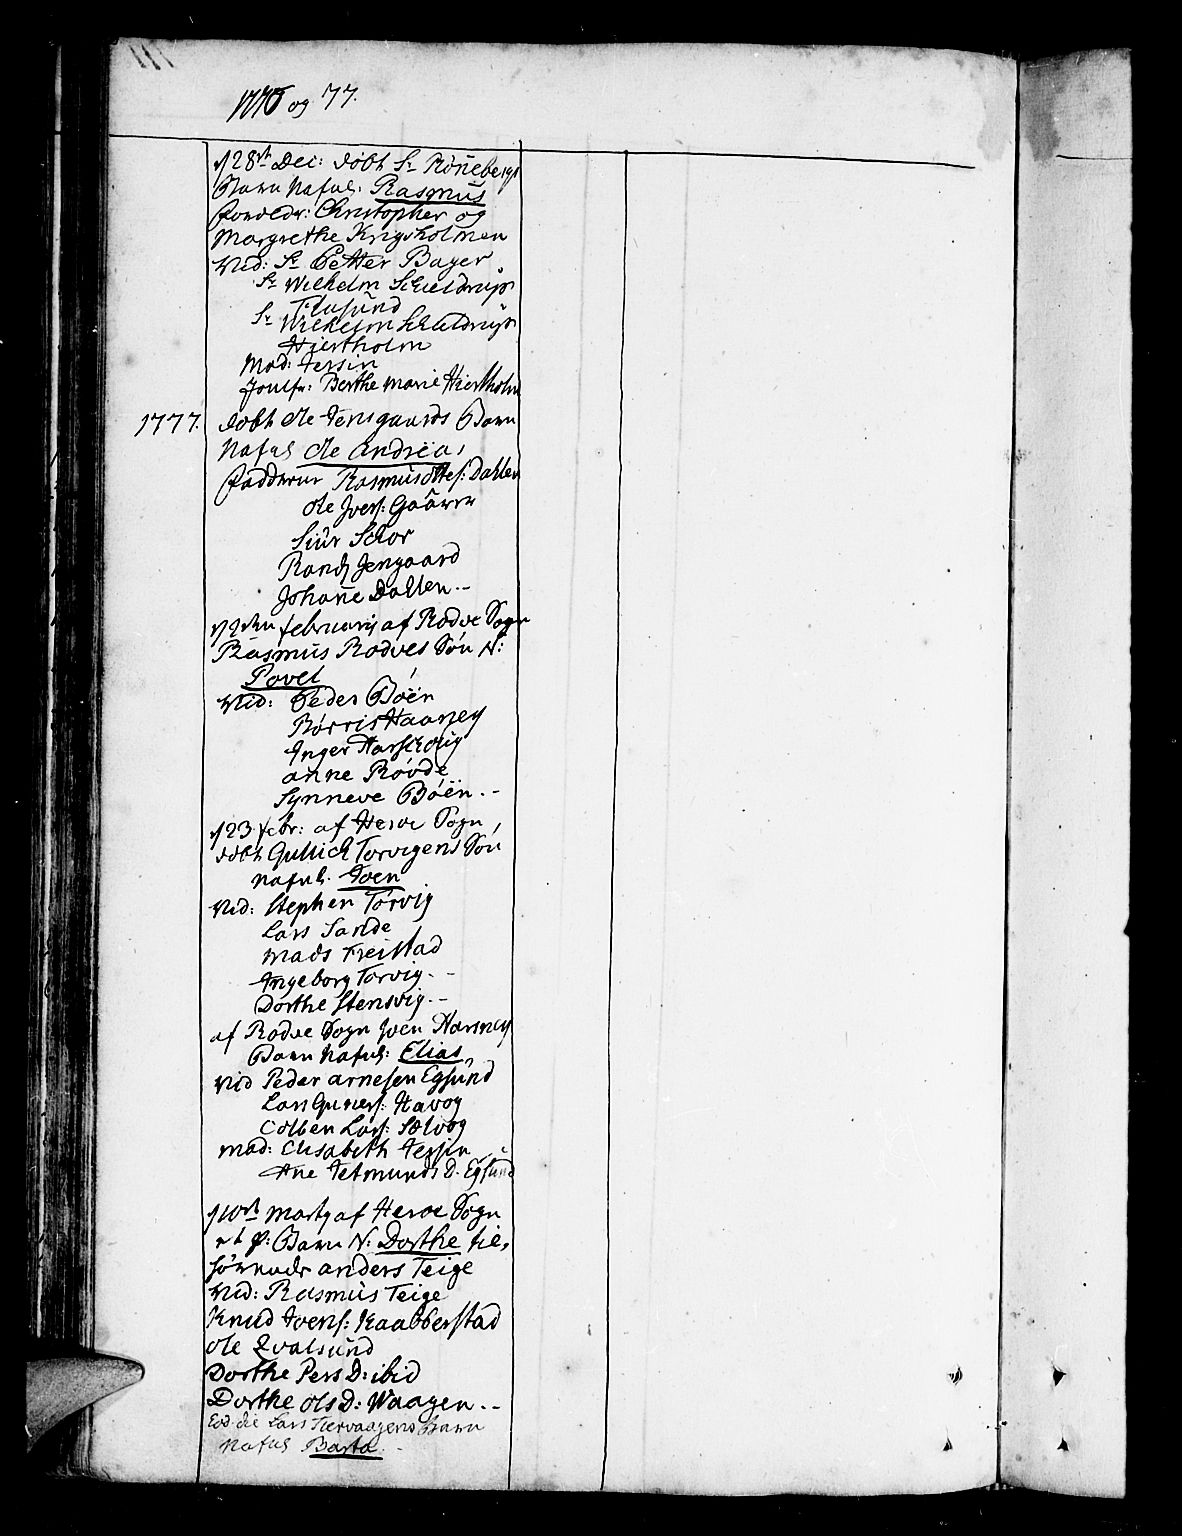 1776 og 77.
d 28de Dec: døbt Sr Rønnebergs
Barn Nafnl: Rasmus
forældr: Christopher og
Margrethe Krigsholmen
Vid: Sr Petter Bager
Sr Wilhelm Schieldrup
Sr Wilhelm Schieldrup
Hiertholm
Mad: Jersin
Jomfr: Berthe Marie Hiertholm
1777. døbt Ole Jensgaards Barn
Nafnl Ole Andreas
fadderne Rasmus Ottes: Dahlen
Ole Ivers: Gaaren
Siur Schor
Rand Jengaard
Johanne Dahlen.-
d 2den februarij af Rødve Sogn
Rasmus Rødves Søn N:
Povel
Vid: Peder Bøen
Børris Haanes
Inger Harschoug
Anne Røvde
Synneve Bøen.-
d 23 febr: af Herøe Sogn
døbt Gullich Torvigens Søn
Nafnl. Joen
Vid: Stephen Torvig
Lars Sande
Mads Freistad
Ingeborg Torvig.-
Dorthe Stensvig.-
af Rødve Sogn Joen Harsnes
Barn Nafnl: Elias
Vid Peder Arnesen Egsund
Lars Guners: Havog
Colben Lars: Selvog
Mad: Elisabeth Jersin
Ane Jetmunds D. Egsund
d 10de Marty af Herøe Sogn
et P: Barn N: Dorthe til-
hørende Anders Teige
Vid: Rasmus Teige
Knud Joens: Kaabberstad
Ole Qvalsund
Dorthe Pers D: ibid
Dorthe Ols D: Waagen.-
Eod: die Lars Tiervaagens Barn
Nafnl Barta.-